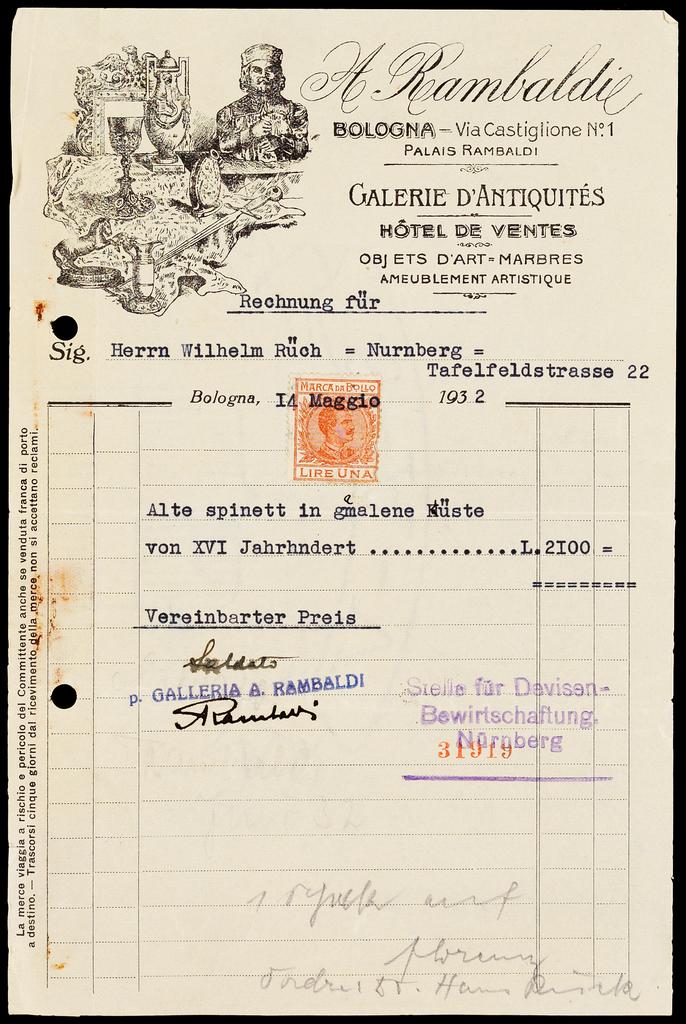 A Rambaldi
BOLOGNA – Via Castiglione Nº. 1
PALAIS RAMBALDI
GALERIE D'ANTIQUITÉS
HÔTEL DE VENTES
OBJETS D'ART = MARBRES
AMEUBLEMENT ARTISTIQUE
Rechnung für
Sig. Herrn Wilhelm Rüch = Nurnberg =
Tafelfeldstrasse 22
Bologna, I4 Maggio 1932
MARCA DA BOLLO
LIRE UNA
Alte spinett in gemalene Küste
von XVI Jahrhndert .............L.2I00 =
=========
Vereinbarter Preis
Saldato
p. GALLERIA A. RAMBALDI
ARambaldi
Stelle für Devisen-
Bewirtschaftung.
Nürnberg
31919
La merce viaggia a rischio e pericolo del Committente anche se venduta franca di porto
a destino. — Trascorsi cinque giorni dal ricevimento della merce non si accettano reclami.
1
Florenz
Dr. Hans Rück